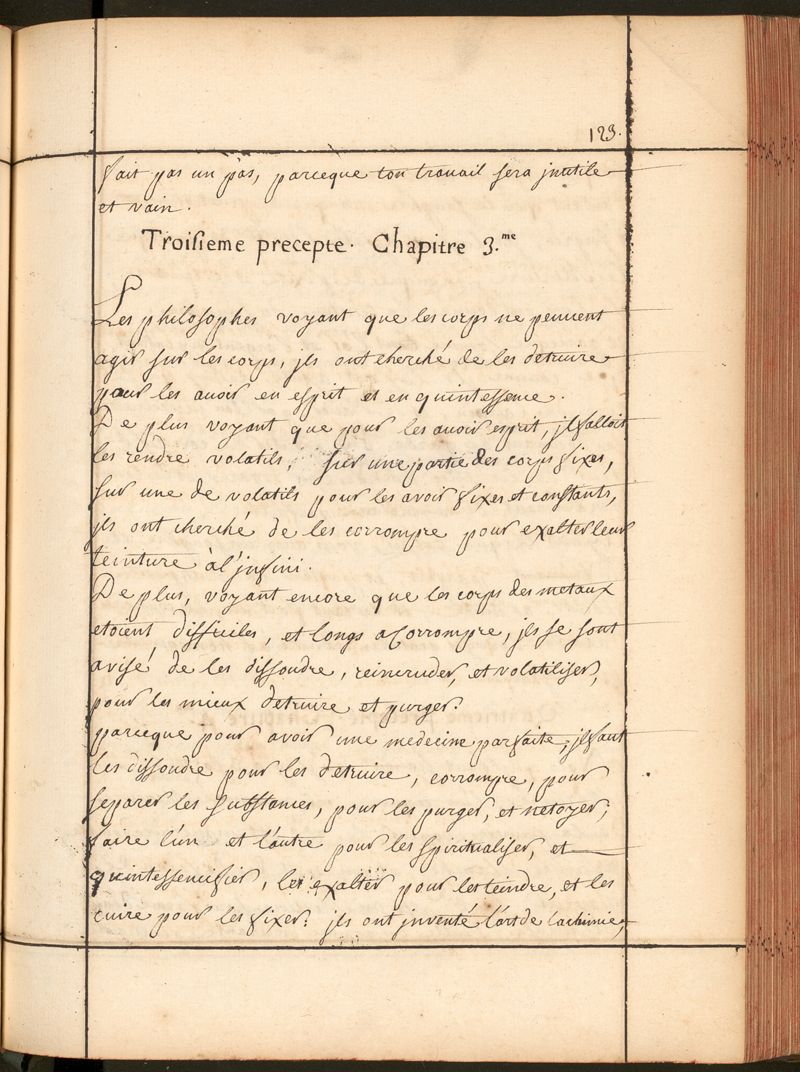 123.
fait pas un pas, parceque ton travail sera jnutile
et vain.
Troisieme precepte. Chapitre 3.me
Les philosophes voyant que les corps ne peuuent
agir sur les corps, jls ont cherché de les detruire
pour les auoir en esprit et en quintessence.
De plus voyant que pour les auoir esprit, jl falloit
les rendre volatils, sur une partie des corps fixes,
sur une de volatils pour les avoir fixes et constants,
jls ont cherché de les corrompre pour exalter leur
teinture à l'jnfini.
De plus, voyant encore que les corps des metaux
etoient difficiles, et longs a Corrompre, jls se sont
avisé de les dissoudre, reincruder, et volatiliser,
pour les mieux detruire et purger.
parceque pour avoir une medecine parfaite, jl faut
les dissoudre pour les detruire, corrompre, pour
separer les substances, pour les purger, et netoyer,
faire l'un et l'autre pour les spiritualiser, et
quintessencifier, les exalter pour les teindre, et les
cuire pour les fixer: jls ont jnventé l'art de la chimie,